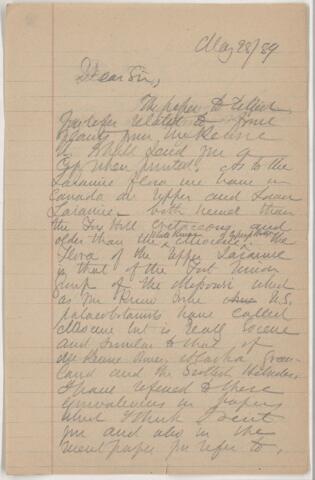 May 28/89
Dear Sir,
The paper to which
you refer related to some
plants from
I shall send you a
copy when printed. As to the
Laramie flora we have in
Canada an Upper and Lower
Laramie - both newer than
the Fox Hill Cretaceous and
older than the
flora of the Upper Laramie
is that of the Fort Union
group of the Missouri which
as you know some U.S.
palaeobotanists have called
Miocene but is really Eocene
and similar to that of
Alaska, Green-
land and the Scottish Islands.
I have referred to these
equivalences in papers
which I think I sent
you and also in the
recent paper you refer to.